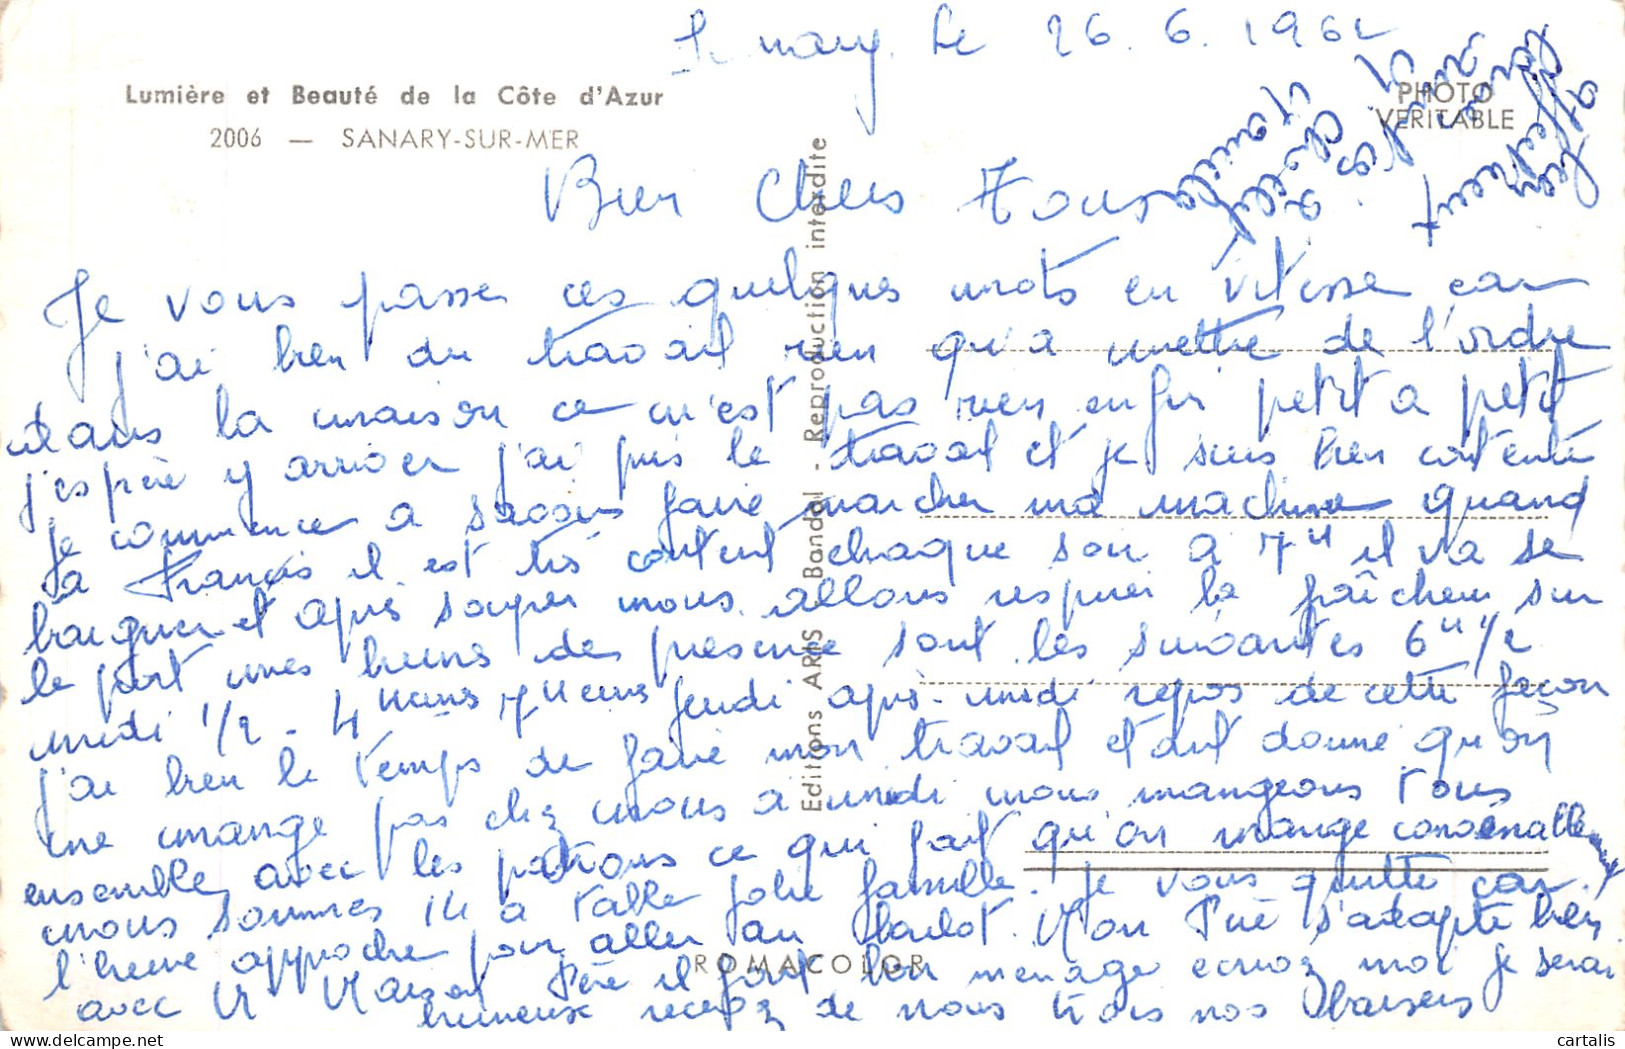 Sanary le 26.6.1962
Lumière et Beauté de la Côte d'Azur
2006 — SANARY-SUR-MER
PHOTO
VERITABLE
Bien Chers Tous
Je vous passe ces quelques mots en vitesse car
j'ai bien du travail rien qu'a mettre de l'ordre
dans la maison ce n'est pas rien enfin petit a petit
j'espère y arriver j'ai pris le travail et je suis bien contente
je commence a savoir faire marcher ma machine quand
a Francis il est très content chaque soir a 7H il va se
baigner et après souper nous allons respirer la fraîcheur sur
le port mes heures de présence sont les suivantes 6H 1/2
midi 1/2 - 4 heures 7 heures jeudi après-midi repos de cette façon
j'ai bien le temps de faire mon travail et donné qu'on
ne mange pas chez nous a midi nous mangeons tous
ensemble avec les patrons ce qui fait qu'on mange convenablement
nous sommes 14 a table jolie famille. je vous quitte car
l'heure approche pour aller au boulot. Mon Père s'adapte bien
avec Mr Père il fait bon ménage écrivez moi je serai
heureuse recevez de nous trois nos baisers
affectueusement
Editions ARIS Bandol - Reproduction interdite
ROMACOLOR
cartalis